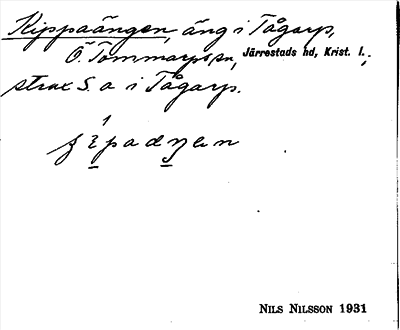 Kippaängen, äng i Tågarp,
Ö. Tommarps sn, Järrestads hd, Krist. l.;
strax S. o i Tågarp.
NILS NILSSON 1931